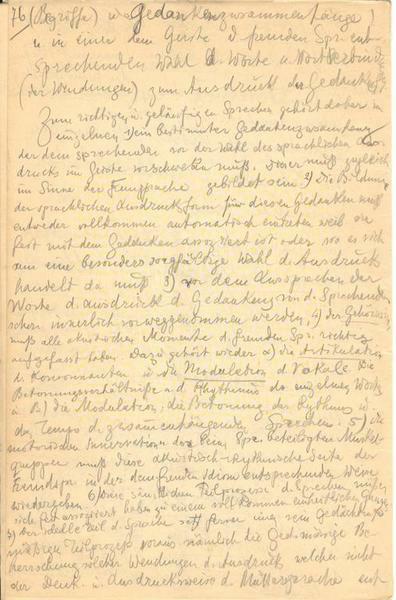 76) (Begriffe) u. Gedankenzusammenhänge)
u in einer dem Geiste d. fremden Spr. ent
sprechenden Wahl d. Worte u. Wortverbind
(der Wendungen) zum Ausdruck der Gedanken
Zum richtigen u. geläufigen Sprechen gehört daher im
einzelnen 1) ein bestimmter Gedankenzusammenhang
der dem sprechenden vor der Wahl des sprachlichen Aus
drucks im Geiste vorschweben muß. Dieser muß zugleich
im Sinne der Fremdsprache gebildet sein 2) Die Bildung
der sprachlichen Ausdrucksform für diesen Gedanken muß
entweder vollkommen automatisch eintreten weil sie
fest mit dem Gedanken assoziiert ist oder wo es sich
um eine besonders sorgfältige Wahl d. Ausdrucks
handelt da muß 3) vor dem Aussprechen der
Worte d. Ausdruck d. Gedankens von d. Sprechenden
schon innerlich vorweggenommen werden, 4) der Gehörsinn
muß alle akustischen Momente d. fremden Spr. richtig
aufgefasst haben Dazu gehört wieder α) die Artikulation
d. Konsonanten u. die Modulation d. Vokale. Die
Betonungsverhältnisse u. d. Rhythmus der einzelnen Worte
u. β) die Modulation, die Betonung, der Rythmus u.
das Tempo d. zusammenhängenden Sprechens. 5) die
motorischen Innervation der beim Spr. beteiligten Muskel
gruppen muß diese akustisch-rhythmische Seite der
Fremdspr. in der dem fremden Idiom entsprechenden Weise
wiedergeben 6) diese sämtlichen Teilprozesse d. Sprechens müssen
sich fest assoziiert haben zu einem vollkommen einheitlichen Ganzen
ideelle Teil d. Sprache setzt ferner einen rein gedächtnis
mäßigen Teilprozeß voraus nämlich die gedächtnismäßige Be
herrschung solcher Wendungen d. Ausdrucks welche nicht
der Denk- u. Ausdrucksweise d. Muttersprache ent